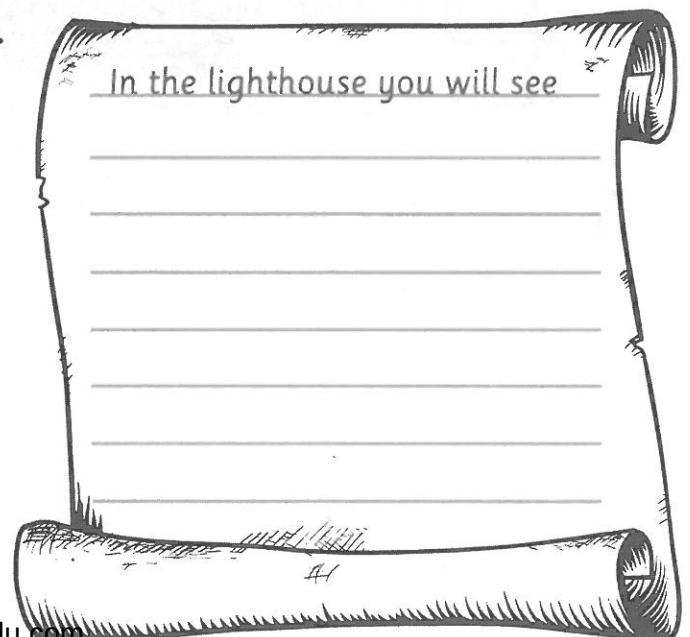 In the lighthouse you will see
du.com